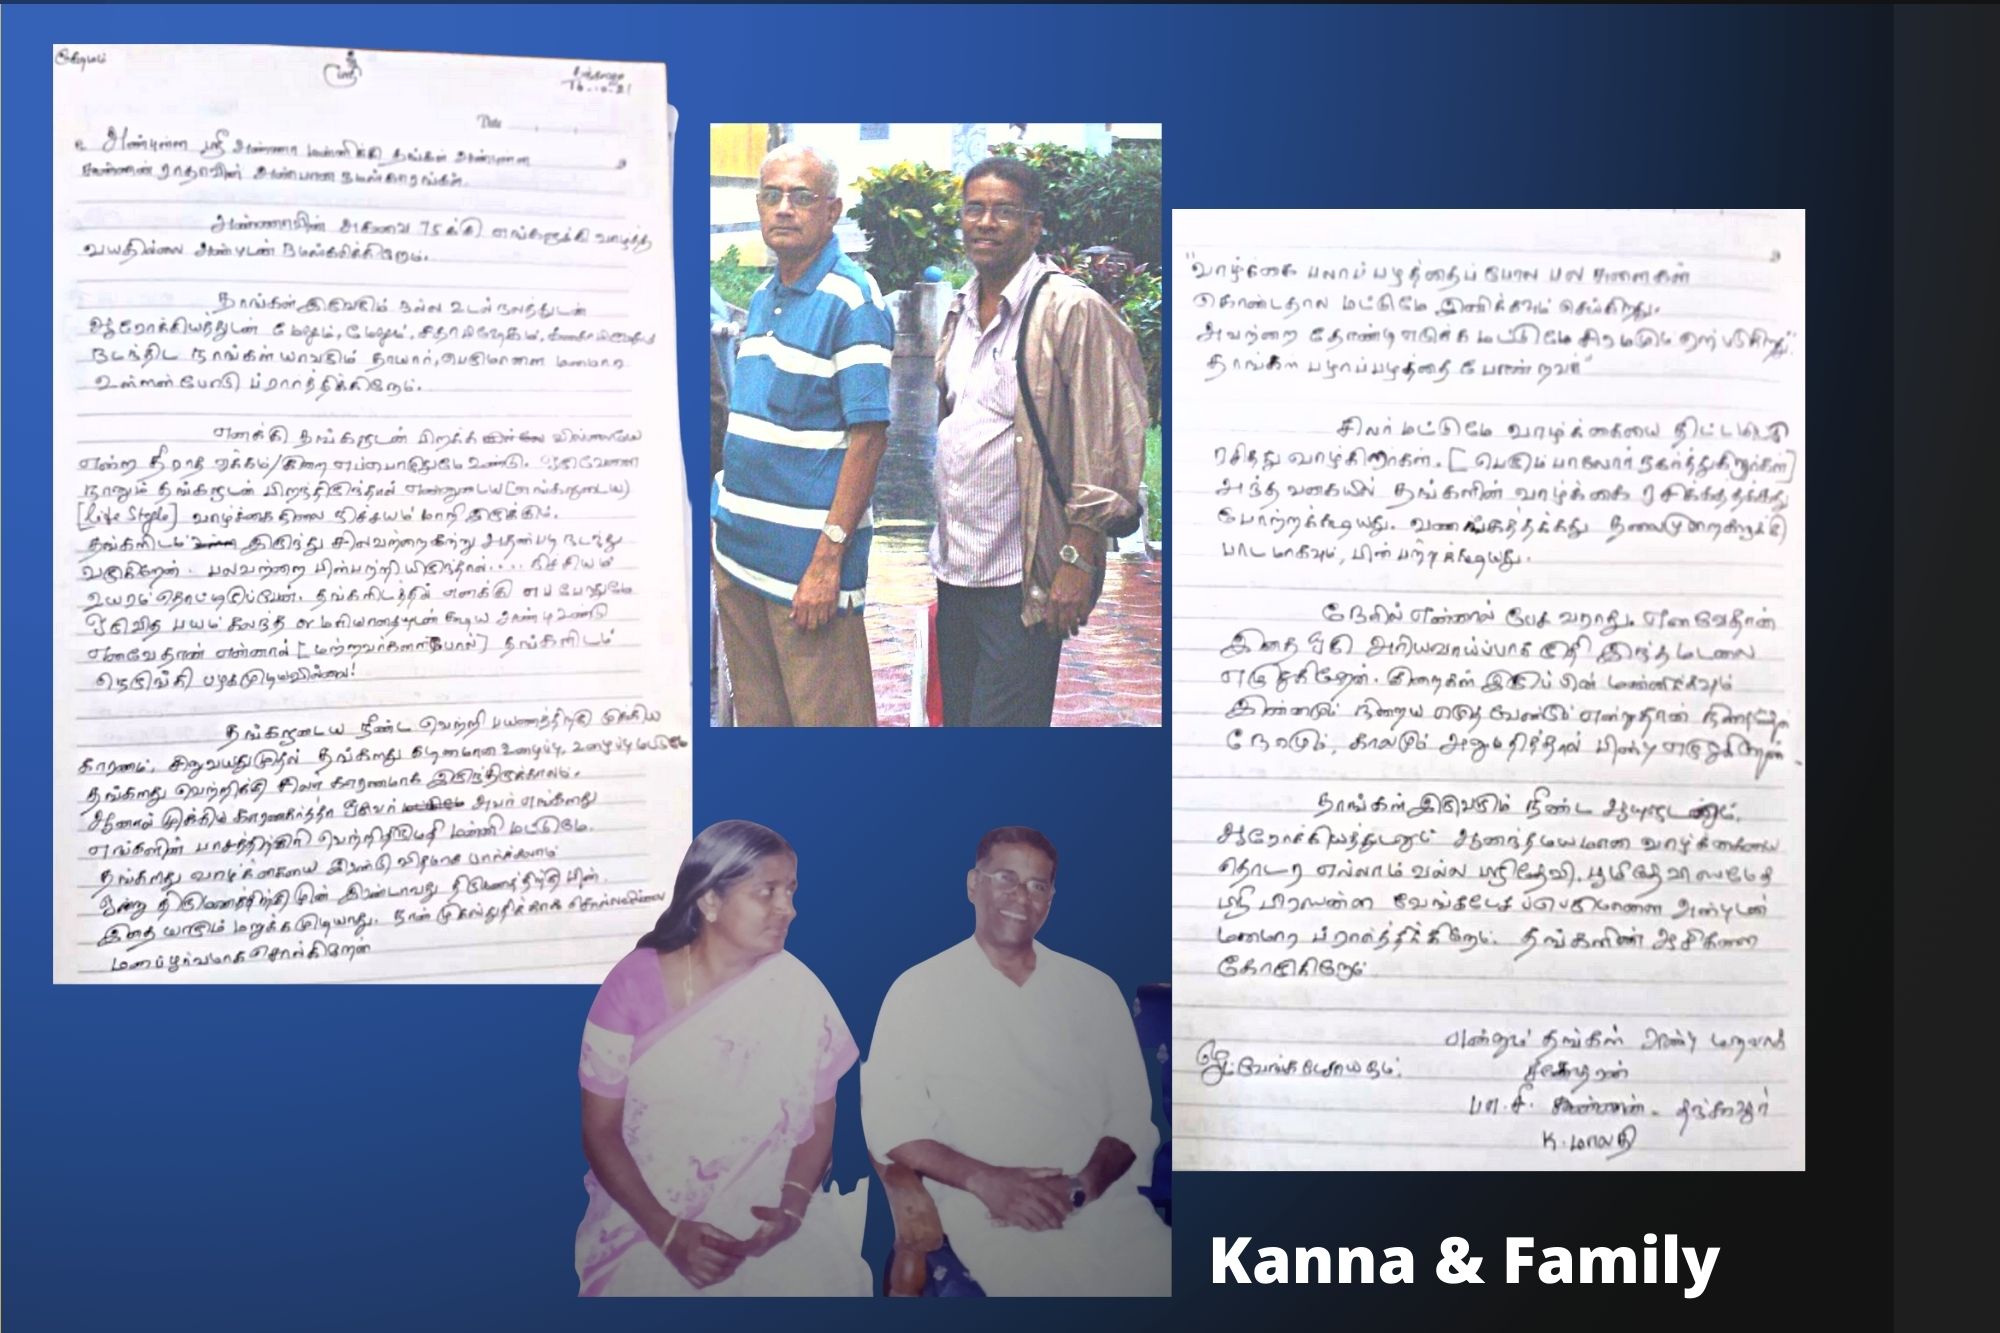 க்ஷேமம்
ஸ்ரீ
தஞ்சாவூர்
16-10-21
Date
அன்புள்ள ஸ்ரீ அண்ணா மன்னிக்கு தங்கள் அன்புள்ள
கண்ணன் ராதாவின் அன்பான நமஸ்காரங்கள்.
அண்ணாவின் அகவை 75க்கு எங்களுக்கு வாழ்த்த
வயதில்லை அன்புடன் நமஸ்கரிக்கிறோம்.
தாங்கள் இருவரும் நல்ல உடல் நலத்துடன்
ஆரோக்கியத்துடன் மேலும், மேலும்,
நடந்திட நாங்கள் யாவரும் தாயார், பெருமாளை மனமார
உள்ளன்போடு ப்ரார்த்திக்கிறோம்.
எனக்கு தங்களுடன் பிறக்க வில்லையே
என்ற தீராத ஏக்கம்/குறை எப்பொழுதுமே உண்டு.
நானும் தங்களுடன் பிறந்திருந்தால் என்னுடைய (எங்களுடைய)
[Life Style] வாழ்க்கை நிலை நிச்சயம் மாறி இருக்கும்.
தங்களிடம் இருந்து சிலவற்றை கற்று அதன்படி நடந்து
வருகிறேன். பலவற்றை பின்பற்றி யிருந்தால்.... நிச்சியம்
உயரம் தொட்டிருப்பேன். தங்களிடத்தில் எனக்கு எப்போதுமே
ஒருவித பயம் கலந்த மரியாதையுடன் கூடிய அன்பு உண்டு
எனவேதான் என்னால் [மற்றவர்களைப்போல்] தங்களிடம்
நெருங்கி பழகமுடியவில்லை!
தங்களுடைய நீண்ட வெற்றி பயணத்திற்கு முக்கிய
காரணம், சிறுவயதுமுதல் தங்களது கடினமான உழைப்பு, உழைப்பு மட்டுமே
தங்களது வெற்றிக்கு சிலர் காரணமாக இருந்திருக்கலாம்.
ஆனால் முக்கிய காரணகர்த்தா ஒருவர் அவர் எங்களது
எங்களின் பாசத்திற்குரி வெற்றிதிருமதி மன்னி மட்டுமே.
தங்களது வாழ்க்கையை இரண்டு விதமாக பார்க்கலாம்
ஒன்று திருமணத்திற்கு முன் இரண்டாவது திருமணத்திற்கு பின்.
இதை யாரும் மறுக்க முடியாது. நான் முகஸ்துதிக்காக சொல்லவில்லை
மனப்பூர்வமாக சொல்கிறேன்
"வாழ்க்கை பலாப்பழத்தைப் போல பல சுளைகள்
கொண்டதால் மட்டுமே இனிக்கவும் செய்கிறது.
அவற்றை தோண்டி எடுக்க மட்டுமே சிரமமும் ஏற்படுகிறது"
தாங்கள் பழாப்பழத்தை போன்றவர்"
சிலர் மட்டுமே வாழ்க்கையை திட்டமிட்டு
ரசித்து வாழ்கிறார்கள். [பெரும்பாலோர் நகர்த்துகிறார்கள்]
அந்த வகையில் தங்களின் வாழ்க்கை ரசிக்கத்தக்கது
போற்றக்கூடியது. வணங்கத்தக்கது தலைமுறைகளுக்கு
பாடமாகவும், பின்பற்றக்கூடியது.
நேரில் என்னால் பேச வராது. எனவேதான்
இதை ஒரு அரியவாய்ப்பாக கருதி இந்த மடலை
எழுதுகிறேன். குறைகள் இருப்பின் மன்னிக்கவும்
இன்னமும் நிறைய எழுத வேண்டும் என்றுதான் நினைப்பு
நேரமும், காலமும் அனுமதித்தால் பின்பு எழுதுகிறேன்.
தாங்கள் இருவரும் நீண்ட ஆயுளுடனும்,
ஆரோக்கியத்துடனும் ஆனந்தமயமான வாழ்க்கையை
தொடர எல்லாம் வல்ல ஸ்ரீதேவி, பூமிதேவி ஸமேத
ஸ்ரீ பிரஸன்ன வேங்கடேசப்பெருமாளை அன்புடன்
மனமார ப்ரார்த்திக்கிறேம். தங்களின் ஆசிகளை
கோருகிறேம்
என்றும் தங்கள் அன்பு மறவாத
சகோதரன்
கண்ணன் - தஞ்சாவூர்
K. மாலதி
Kanna & Family